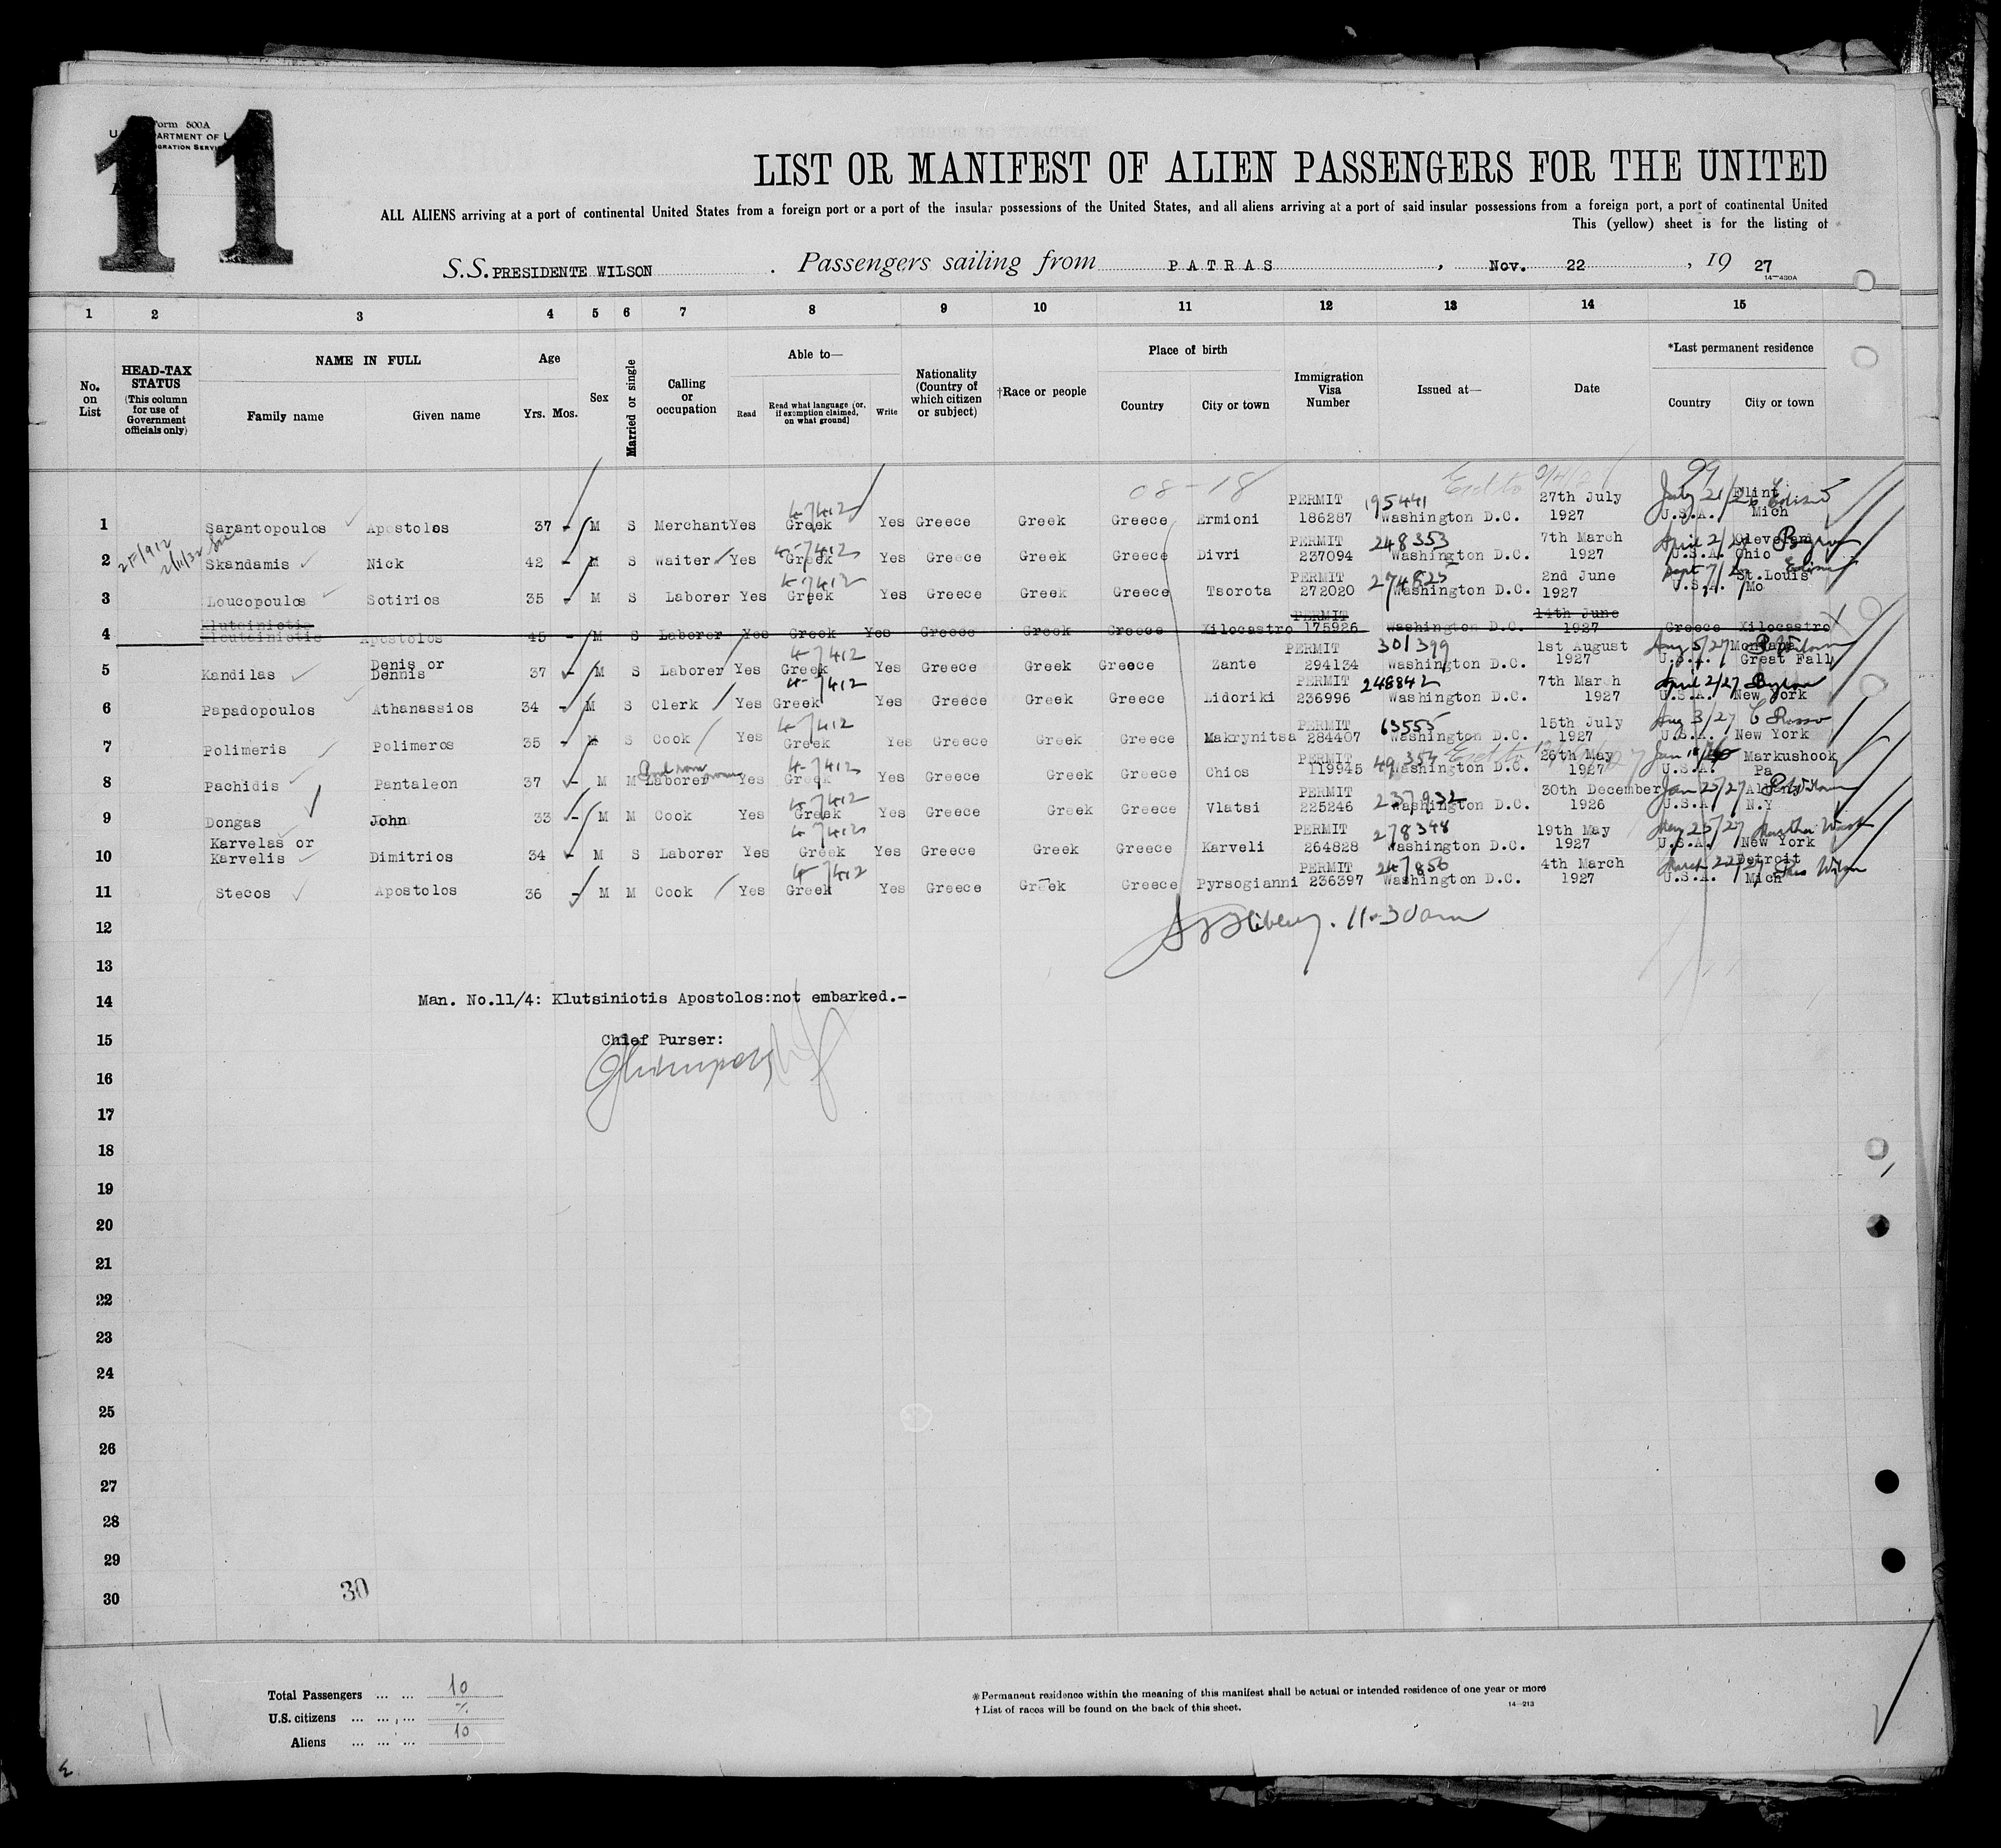 11
Form 500A
LIST OR MANIFEST OF ALIEN PASSENGERS FOR THE UNITED
ALL ALIENS arriving at a port of continental United States from a foreign port or a port of the insular possessions of the United States, and all aliens arriving at a port of said insular possessions from a foreign port, a port of continental United
This (yellow) sheet is for the listing of
S.S. PRESIDENTE WILSON . Passengers sailing from PATRAS , Nov. 22 , 19 27
14—430A
1 2 3 4 5 6 7 8 9 10 11 12 13 14 15
No. on List
HEAD-TAX STATUS (This column for use of Government officials only)
NAME IN FULL
Family name Given name
Age
Yrs. Mos.
Sex
Married or single
Calling or occupation
Able to—
Read
Read what language (or, if exemption claimed, on what ground)
Write
Nationality (Country of which citizen or subject)
†Race or people
Place of birth
Country City or town
Immigration Visa Number
Issued at—
Date
*Last permanent residence
Country City or town
08-18
99
1 Sarantopoulos Apostolos 37 - M S Merchant Yes 4-7/412 Greek Yes Greece Greek Greece Ermioni PERMIT 186287 195441 Washington D.C. 27th July 1927 July 21/26 U.S.A. Flint Mich
2 Skandamis Nick 42 - M S Waiter Yes 4-7/412 Greek Yes Greece Greek Greece Divri PERMIT 237094 248353 Washington D.C. 7th March 1927 April 2/27 U.S.A. Cleveland Ohio Byron
3 Loucopoulos Sotirios 35 - M S Laborer Yes 4-7/412 Greek Yes Greece Greek Greece Tsorota PERMIT 272020 274825 Washington D.C. 2nd June 1927 Sept 7/27 U.S.A. St.Louis Mo
4 Apostolos 45 - M S Laborer Yes Greek Yes Greece Greek Greece Xilocastro PERMIT 175926 Washington D.C. 14th June 1927 Greece Xilocastro
5 Kandilas Denis or Dennis 37 - M S Laborer Yes 4-7/412 Greek Yes Greece Greek Greece Zante PERMIT 294134 301399 Washington D.C. 1st August 1927 Aug 5/27 U.S.A. Montana Great Fall
6 Papadopoulos Athanassios 34 - M S Clerk Yes 4-7/412 Greek Yes Greece Greek Greece Lidoriki PERMIT 236996 248842 Washington D.C. 7th March 1927 April 2/27 Byron U.S.A. New York
7 Polimeris Polimeros 35 - M S Cook Yes 4-7/412 Greek Yes Greece Greek Greece Makrynitsa PERMIT 284407 63555 Washington D.C. 15th July 1927 Aug 3/27 C Rosso U.S.A. New York
8 Pachidis Pantaleon 37 - M M Laborer Yes 4-7/412 Greek Yes Greece Greek Greece Chios PERMIT 119945 49354 Washington D.C. 26th May 1927 U.S.A. Markushook Pa
9 Dongas John 33 - M M Cook Yes 4-7/412 Greek Yes Greece Greek Greece Vlatsi PERMIT 225246 237932 Washington D.C. 30th December 1926 Jan 25/27 U.S.A. N.Y
10 Karvelas or Karvelis Dimitrios 34 - M S Laborer Yes 4-7/412 Greek Yes Greece Greek Greece Karveli PERMIT 264828 278348 Washington D.C. 19th May 1927 May 25/27 Martha Wash U.S.A. New York
11 Stecos Apostolos 36 - M M Cook Yes 4-7/412 Greek Yes Greece Greek Greece Pyrsogianni PERMIT 236397 247856 Washington D.C. 4th March 1927 March 22/27 Pres Wilson U.S.A. Detroit Mich
12 11-30am
13
14 Man. No.11/4: Klutsiniotis Apostolos:not embarked.-
15 Chief Purser:
16
17
18
19
20
21
22
23
24
25
26
27
28
29
30
30
Total Passengers ... ... 10
U.S. citizens ... ... ...
Aliens ... ... ... 10
11
*Permanent residence within the meaning of this manifest shall be actual or intended residence of one year or more
† List of races will be found on the back of this sheet.
14—213